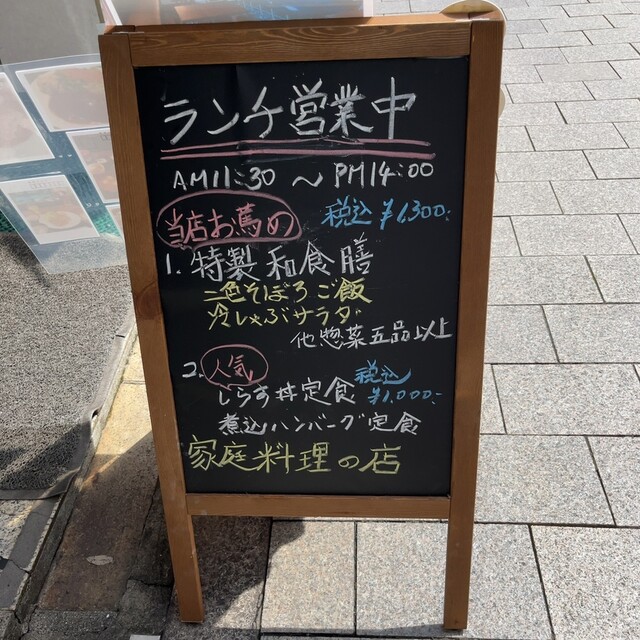 ランチ営業中
AM11:30 〜 PM14:00
当店お薦め 税込 ¥1,300.-
1. 特製和食膳
二色そぼろご飯
冷しゃぶサラダ
他惣菜五品以上
2. 人気 税込
しらす丼定食 ¥1,000.-
煮込ハンバーグ定食
家庭料理の店